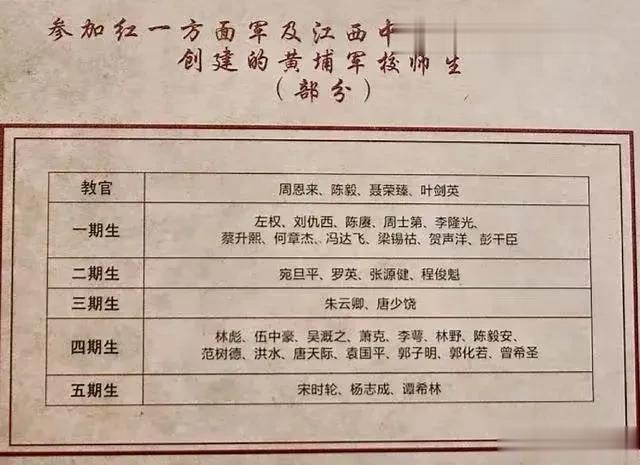 参加红一方面军及江西中
创建的黄埔军校师生
（部分）
教官 周恩来、陈毅、聂荣臻、叶剑英
一期生 左权、刘仇西、陈赓、周士第、李隆光、
蔡升熙、何章杰、冯达飞、梁锡祜、贺声洋、彭干臣
二期生 宛旦平、罗英、张源健、程俊魁
三期生 朱云卿、唐少饶
四期生 林彪、伍中豪、吴溉之、萧克、李萼、林野、陈毅安、
范树德、洪水、唐天际、袁国平、郭子明、郭化若、曾希圣
五期生 宋时轮、杨志成、谭希林